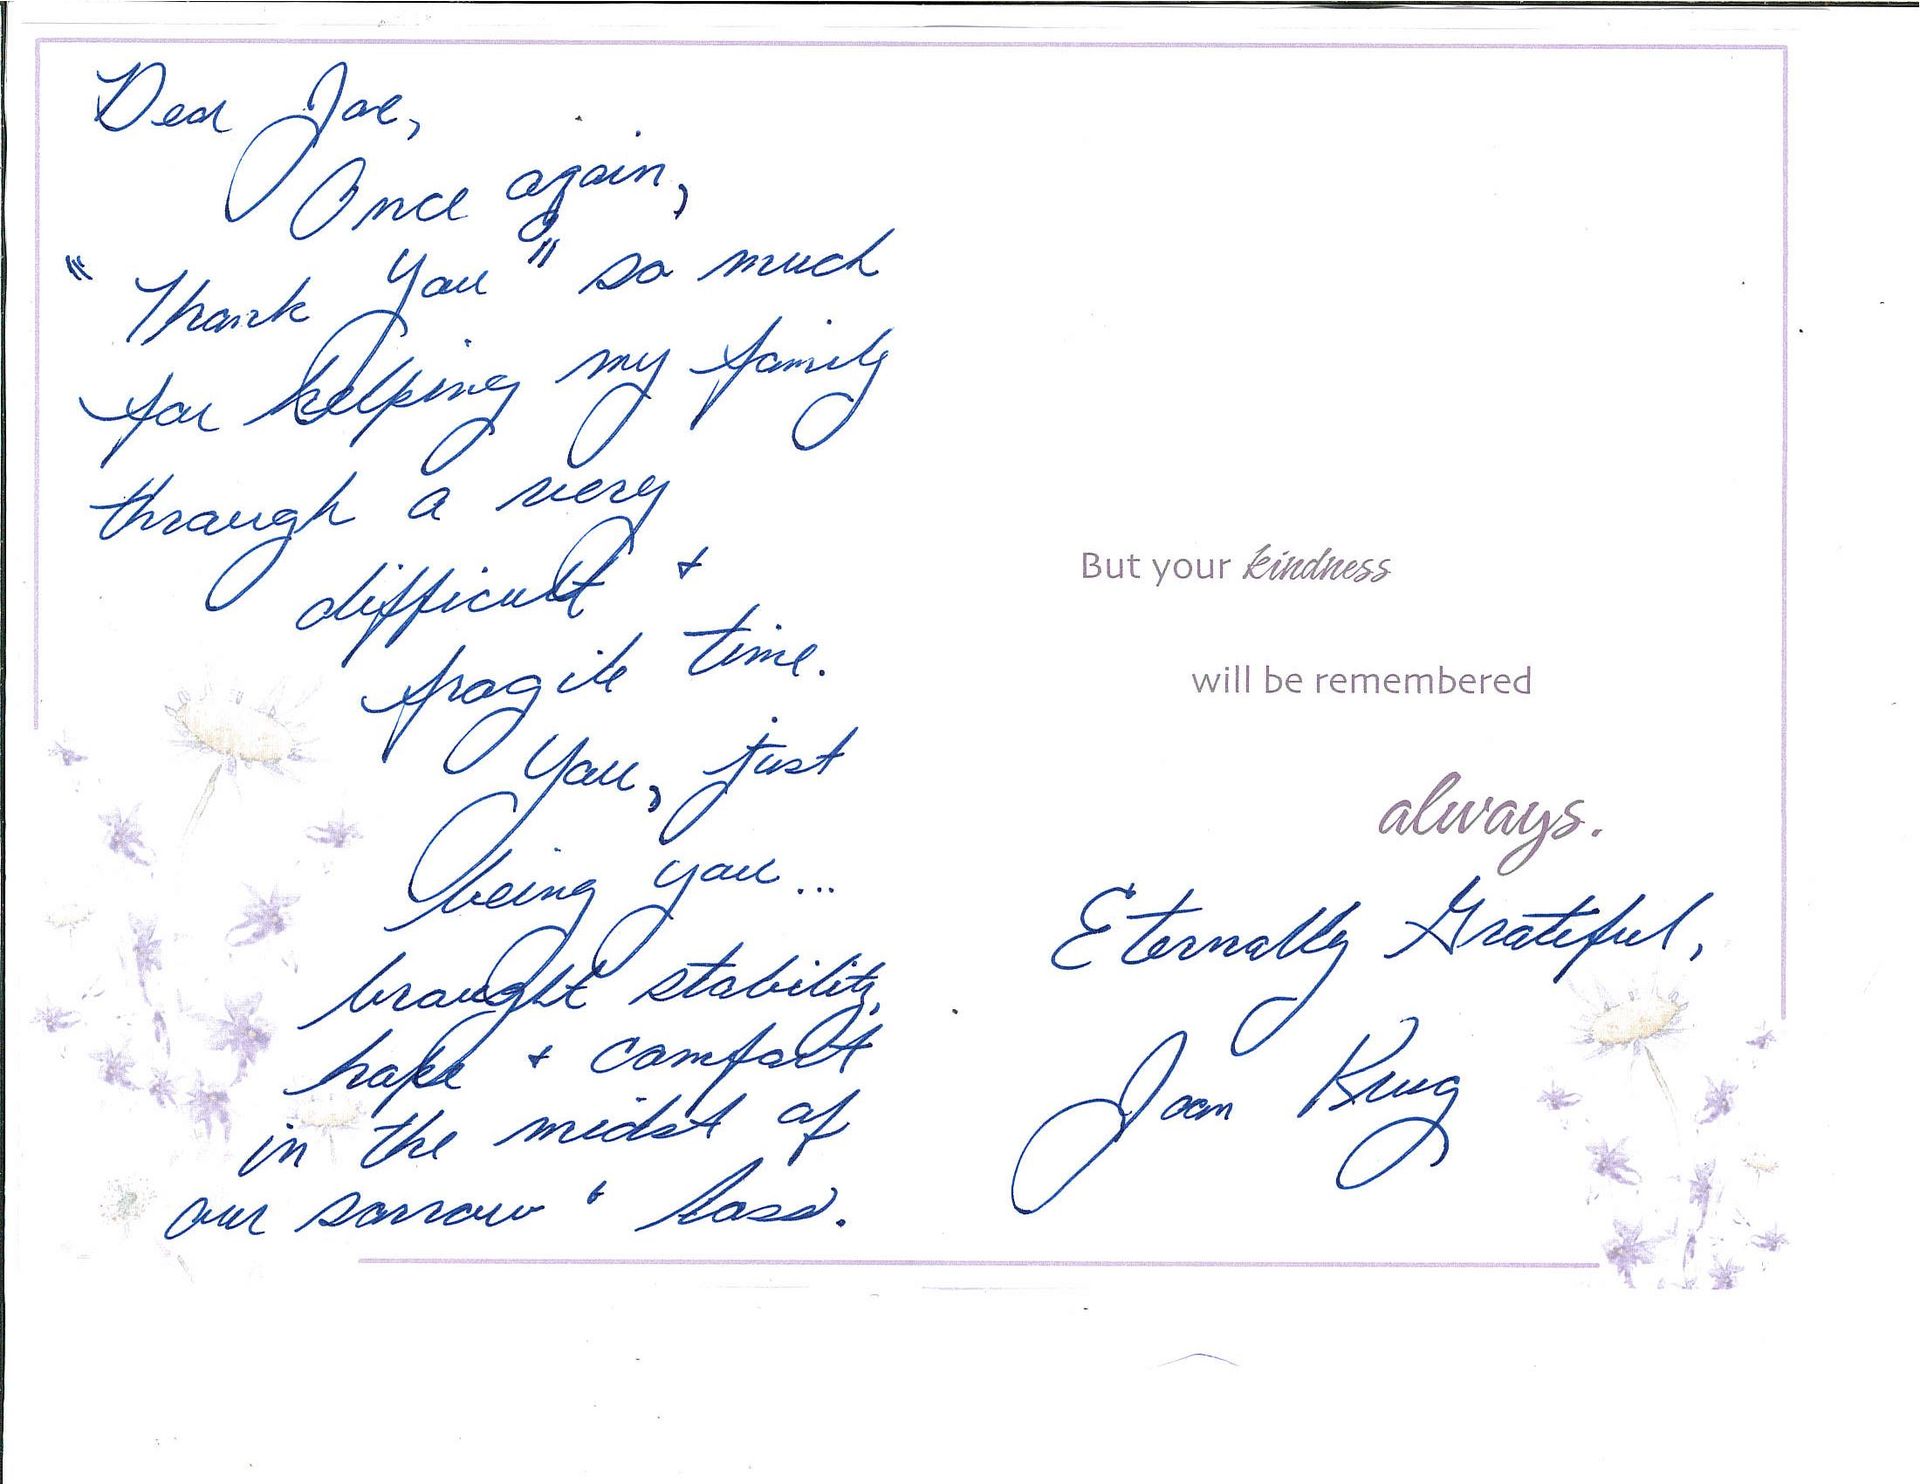 Dear Joe,
Once again,
"Thank You" so much
for helping my family
through a very
difficult +
fragile time.
You, just
being you...
brought stability,
hope + comfort
in the midst of
our sorrow & loss.
But your kindness
will be remembered
always.
Eternally Grateful,
Joan Krug